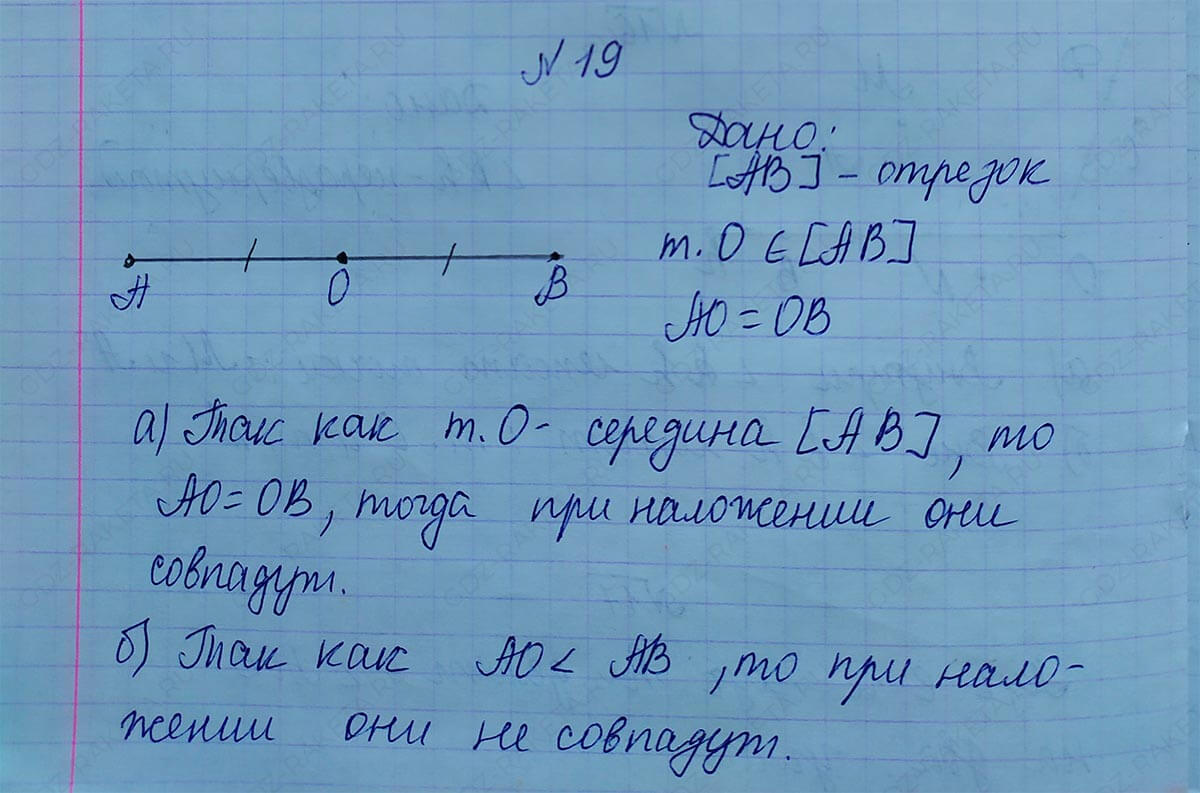 N 19
Дано:
[AB] - отрезок
т. O ∈ [AB]
AO = OB
A O B
а) Так как т. O - середина [AB], то
AO = OB, тогда при наложении они
совпадут.
б) Так как AO < AB, то при нало-
жении они не совпадут.